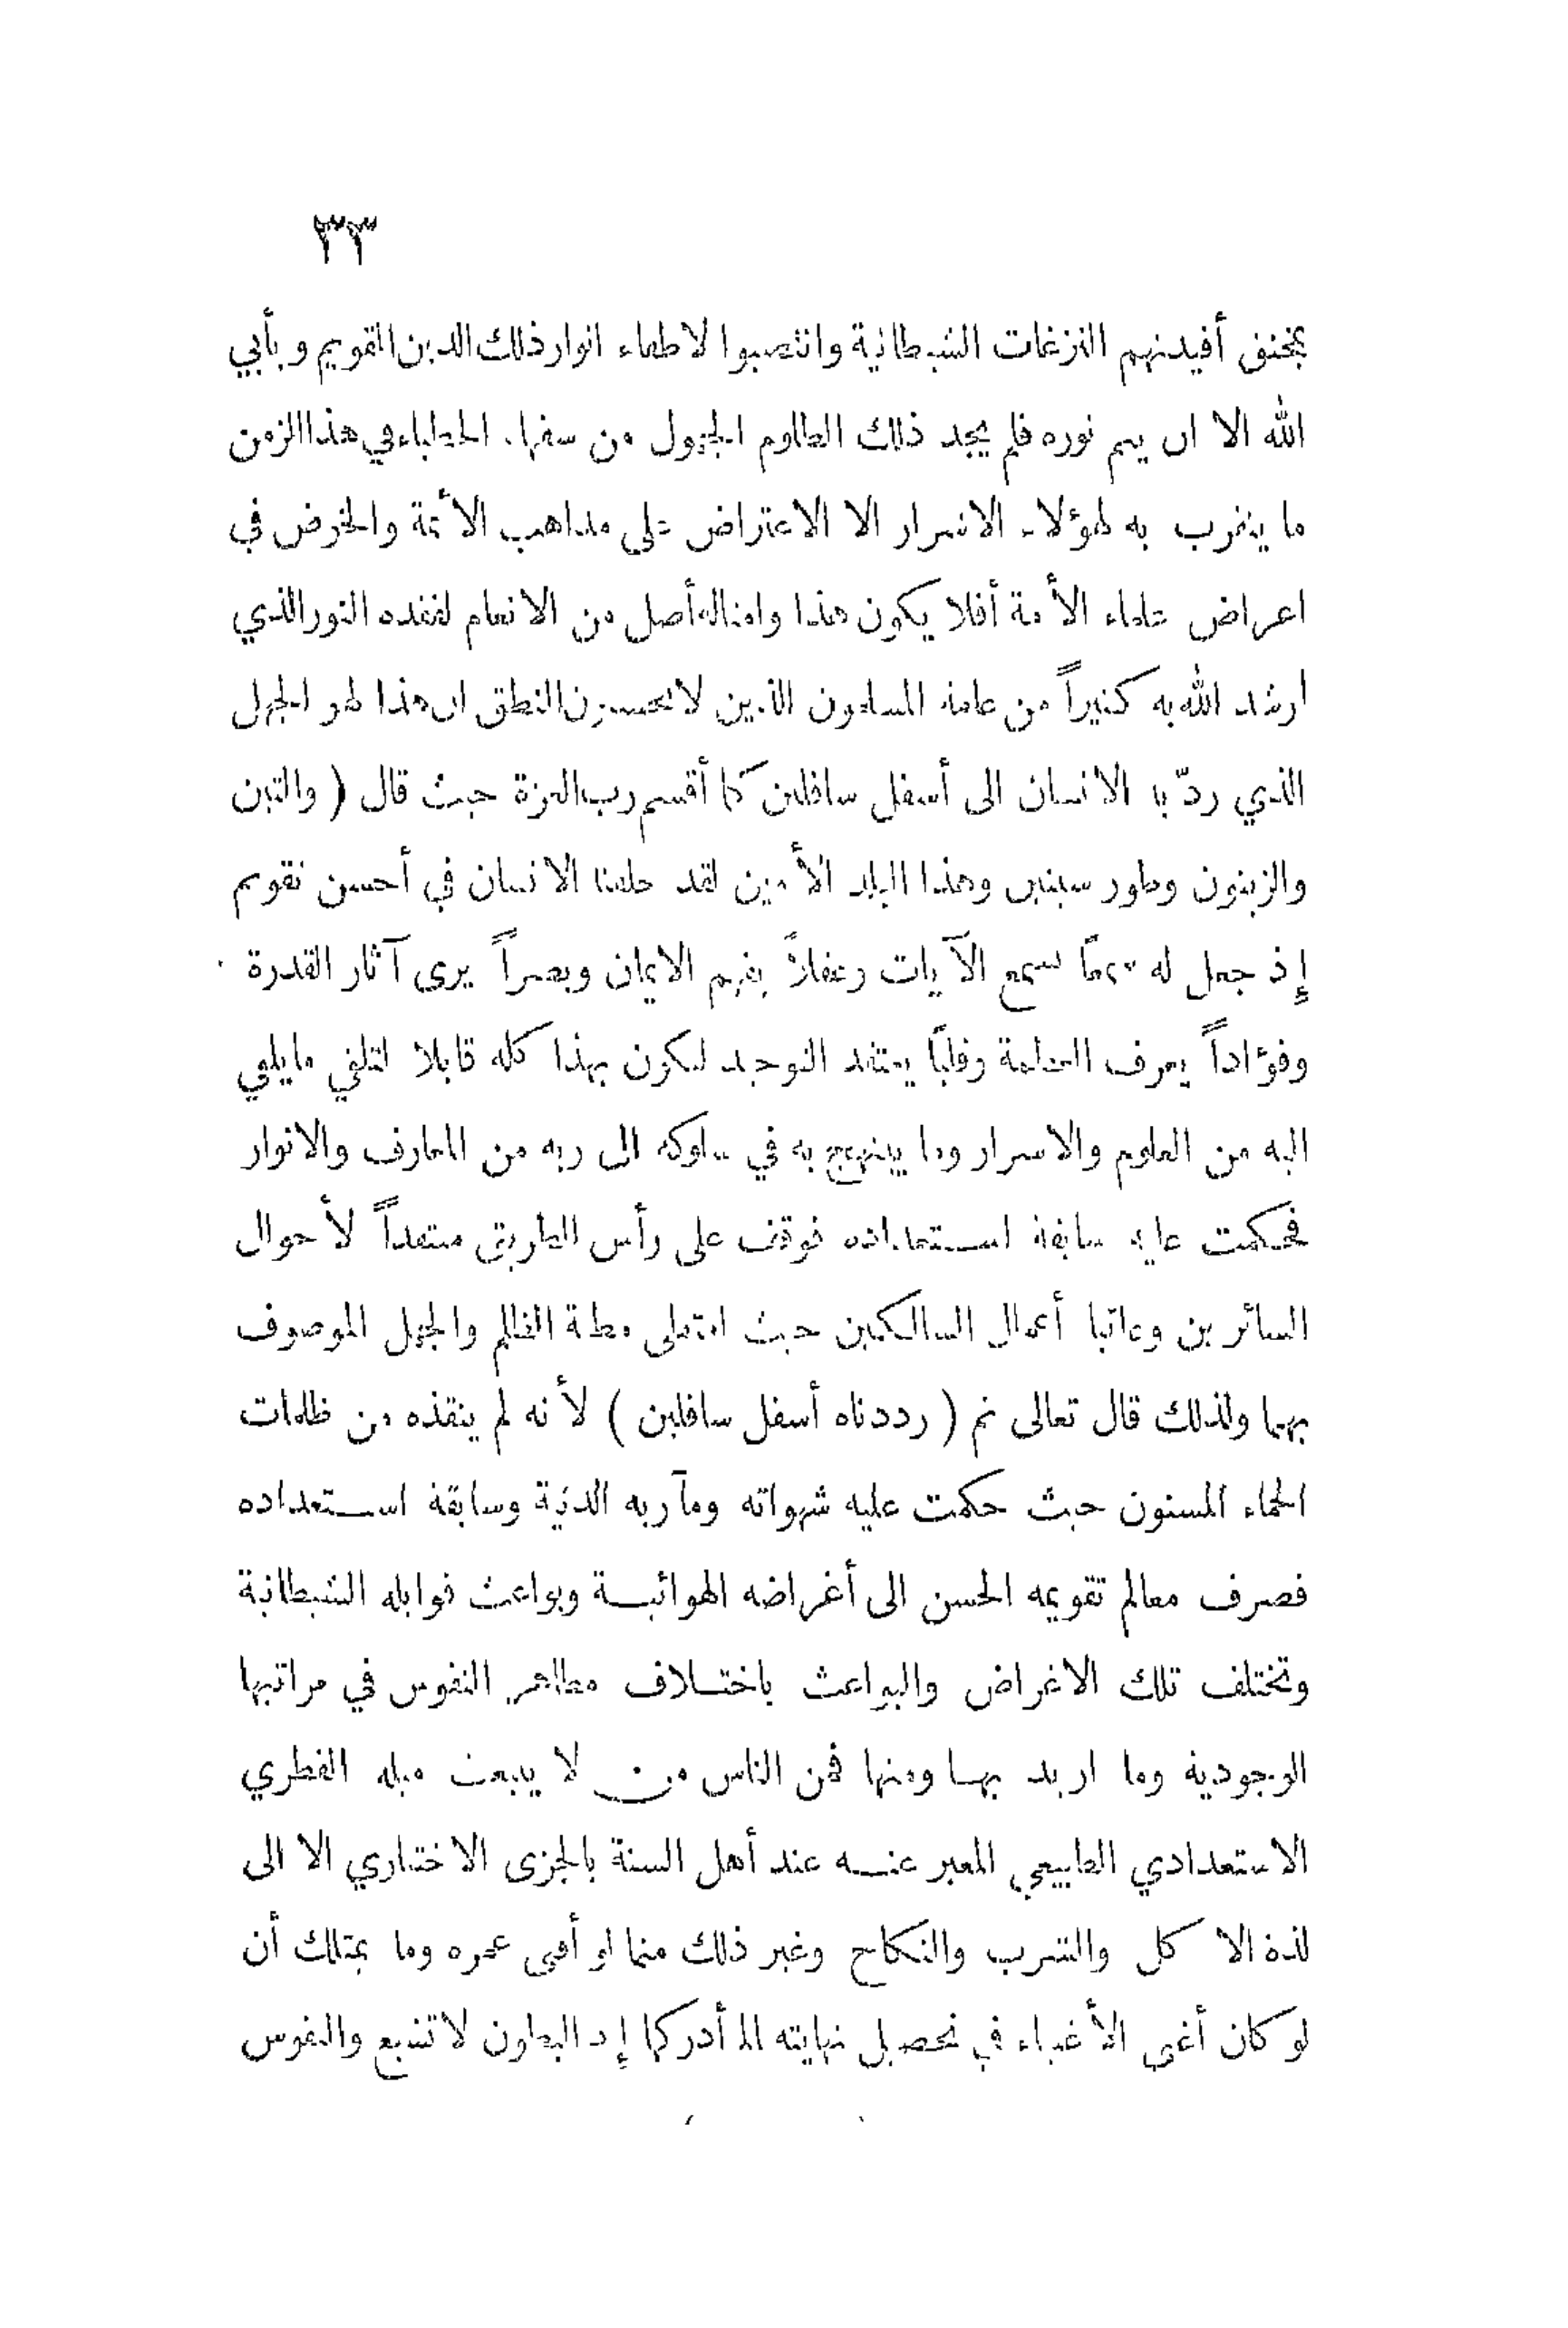 ٣٣
بمخنق أفيدتهم النزغات الشيطانية وانتصبوا لاطفاء انوار ذلك الدين القويم ويأبي
الله الا ان يتم نوره فلم يجد ذلك الظلوم الجهول من سفهاء الخطباء في هذا الزمن
ما يتقرب به لهؤلاء الاشرار الا الاعتراض على مذاهب الأئمة والخوض في
اعراض علماء الأمة أفلا يكون هذا وامثاله أضل من الانعام لفقده النور الذي
ارشد الله به كثيراً من عامة المسلمون الذين لا يحسنون النطق ان هذا لهو الجهل
الذي ردّ با الانسان الى أسفل سافلين كما أقسم رب العزة حيث قال ( والتين
والزيتون وطور سينين وهذا البلد الأمين لقد خلقنا الانسان في أحسن تقويم
إذ جعل له سمعًا لسمع الآيات وعقلاً يفهم الايمان وبصراً يرى آثار القدرة
وفؤاداً يعرف العظمة وقلبًا يعتقد التوحيد ليكون بهذا كله قابلا لتلقي ما يلقي
اليه من العلوم والاسرار وما يبتهج به في سلوكه الى ربه من المعارف والانوار
فحكمت عليه سابقة استعداده فوقف على رأس الطريق منتقداً لأحوال
السائرين وعائبا أعمال السالكين حيث امتطى مطية الظلم والجهل الموصوف
بهما ولذلك قال تعالى ثم ( رددناه أسفل سافلين ) لأنه لم ينقذه من ظلمات
الحماء المسنون حيث حكمت عليه شهواته ومآربه الدنية وسابقة استعداده
فصرف معالم تقويمه الحسن الى أغراضه الهوائية وبواعث قوابله الشيطانية
وتختلف تلك الاغراض والبواعث باختلاف مظاهر النفوس في مراتبها
الوجودية وما اريد بها ومنها فمن الناس من لا يبعث ميله الفطري
الاستعدادي الطبيعي المعبر عنه عند أهل السنة بالجزى الاختياري الا الى
لذة الاكل والشرب والنكاح وغير ذلك مما لو أفنى عمره وما يمتلك أن
لو كان أغنى الأغنياء في تحصيل نهايته لما أدركها إذ البطون لا تشبع والنفوس